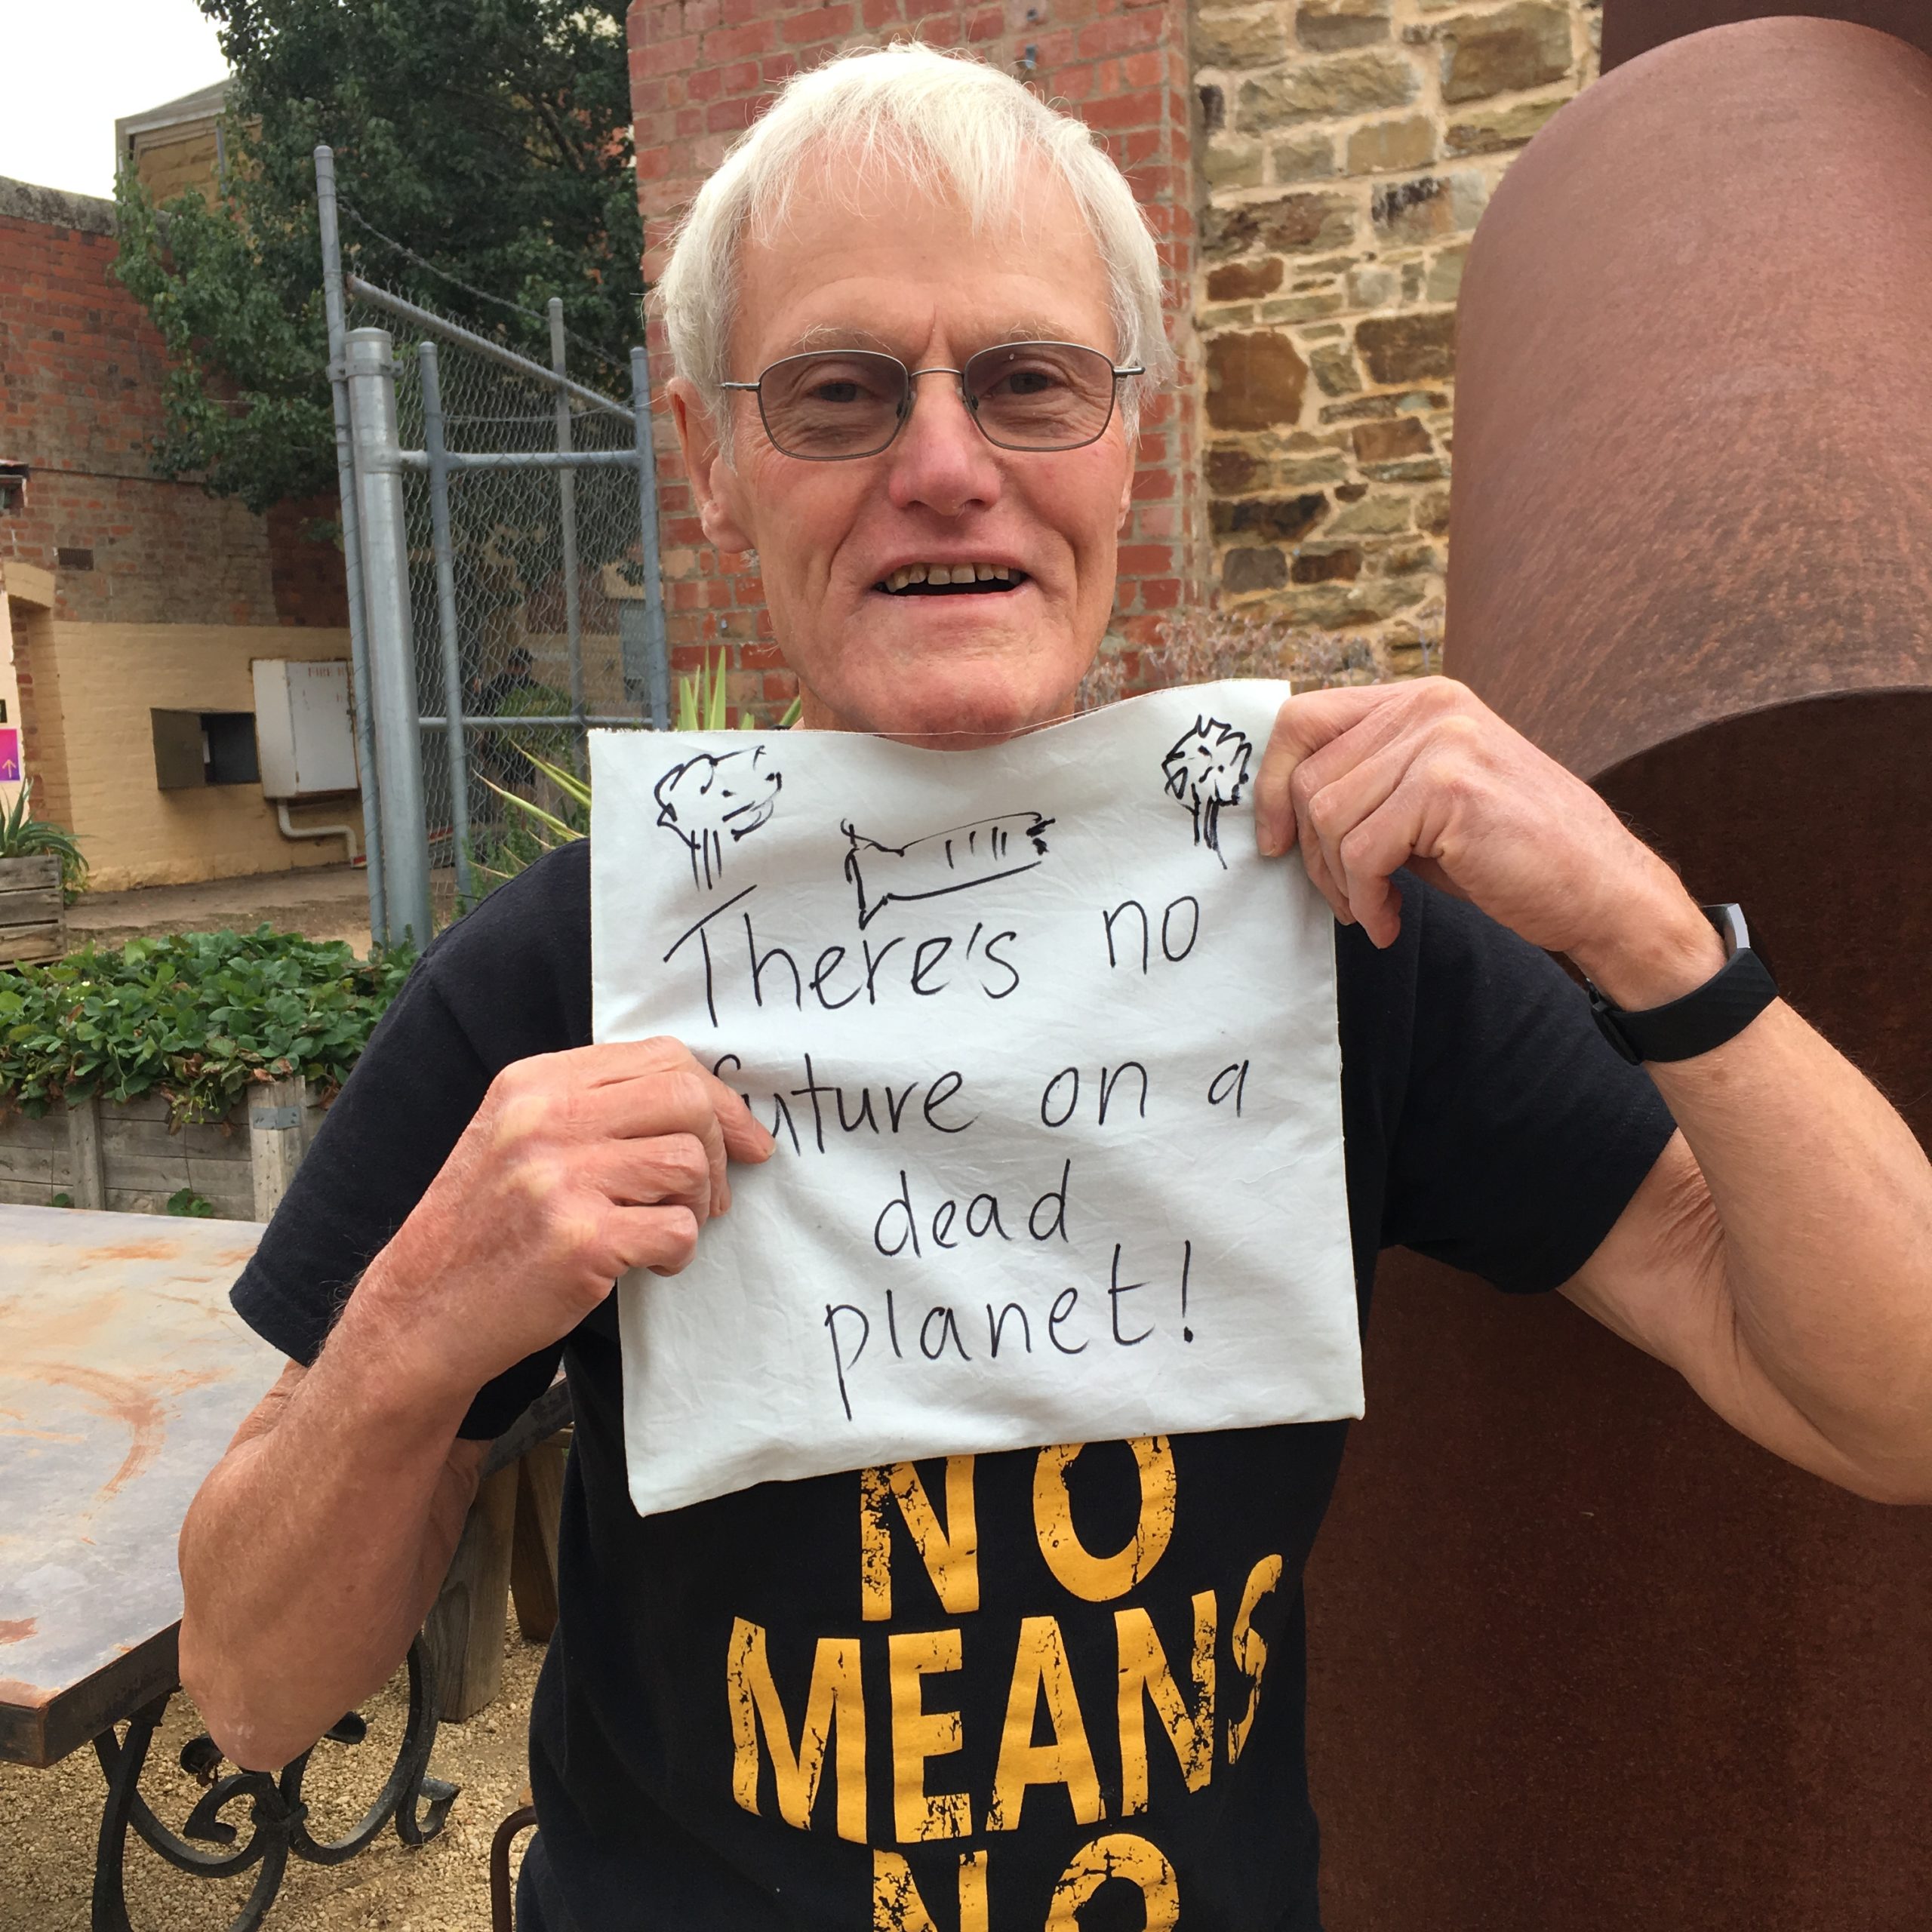 There's no
future on a
dead
planet!
NO
MEANS
NO